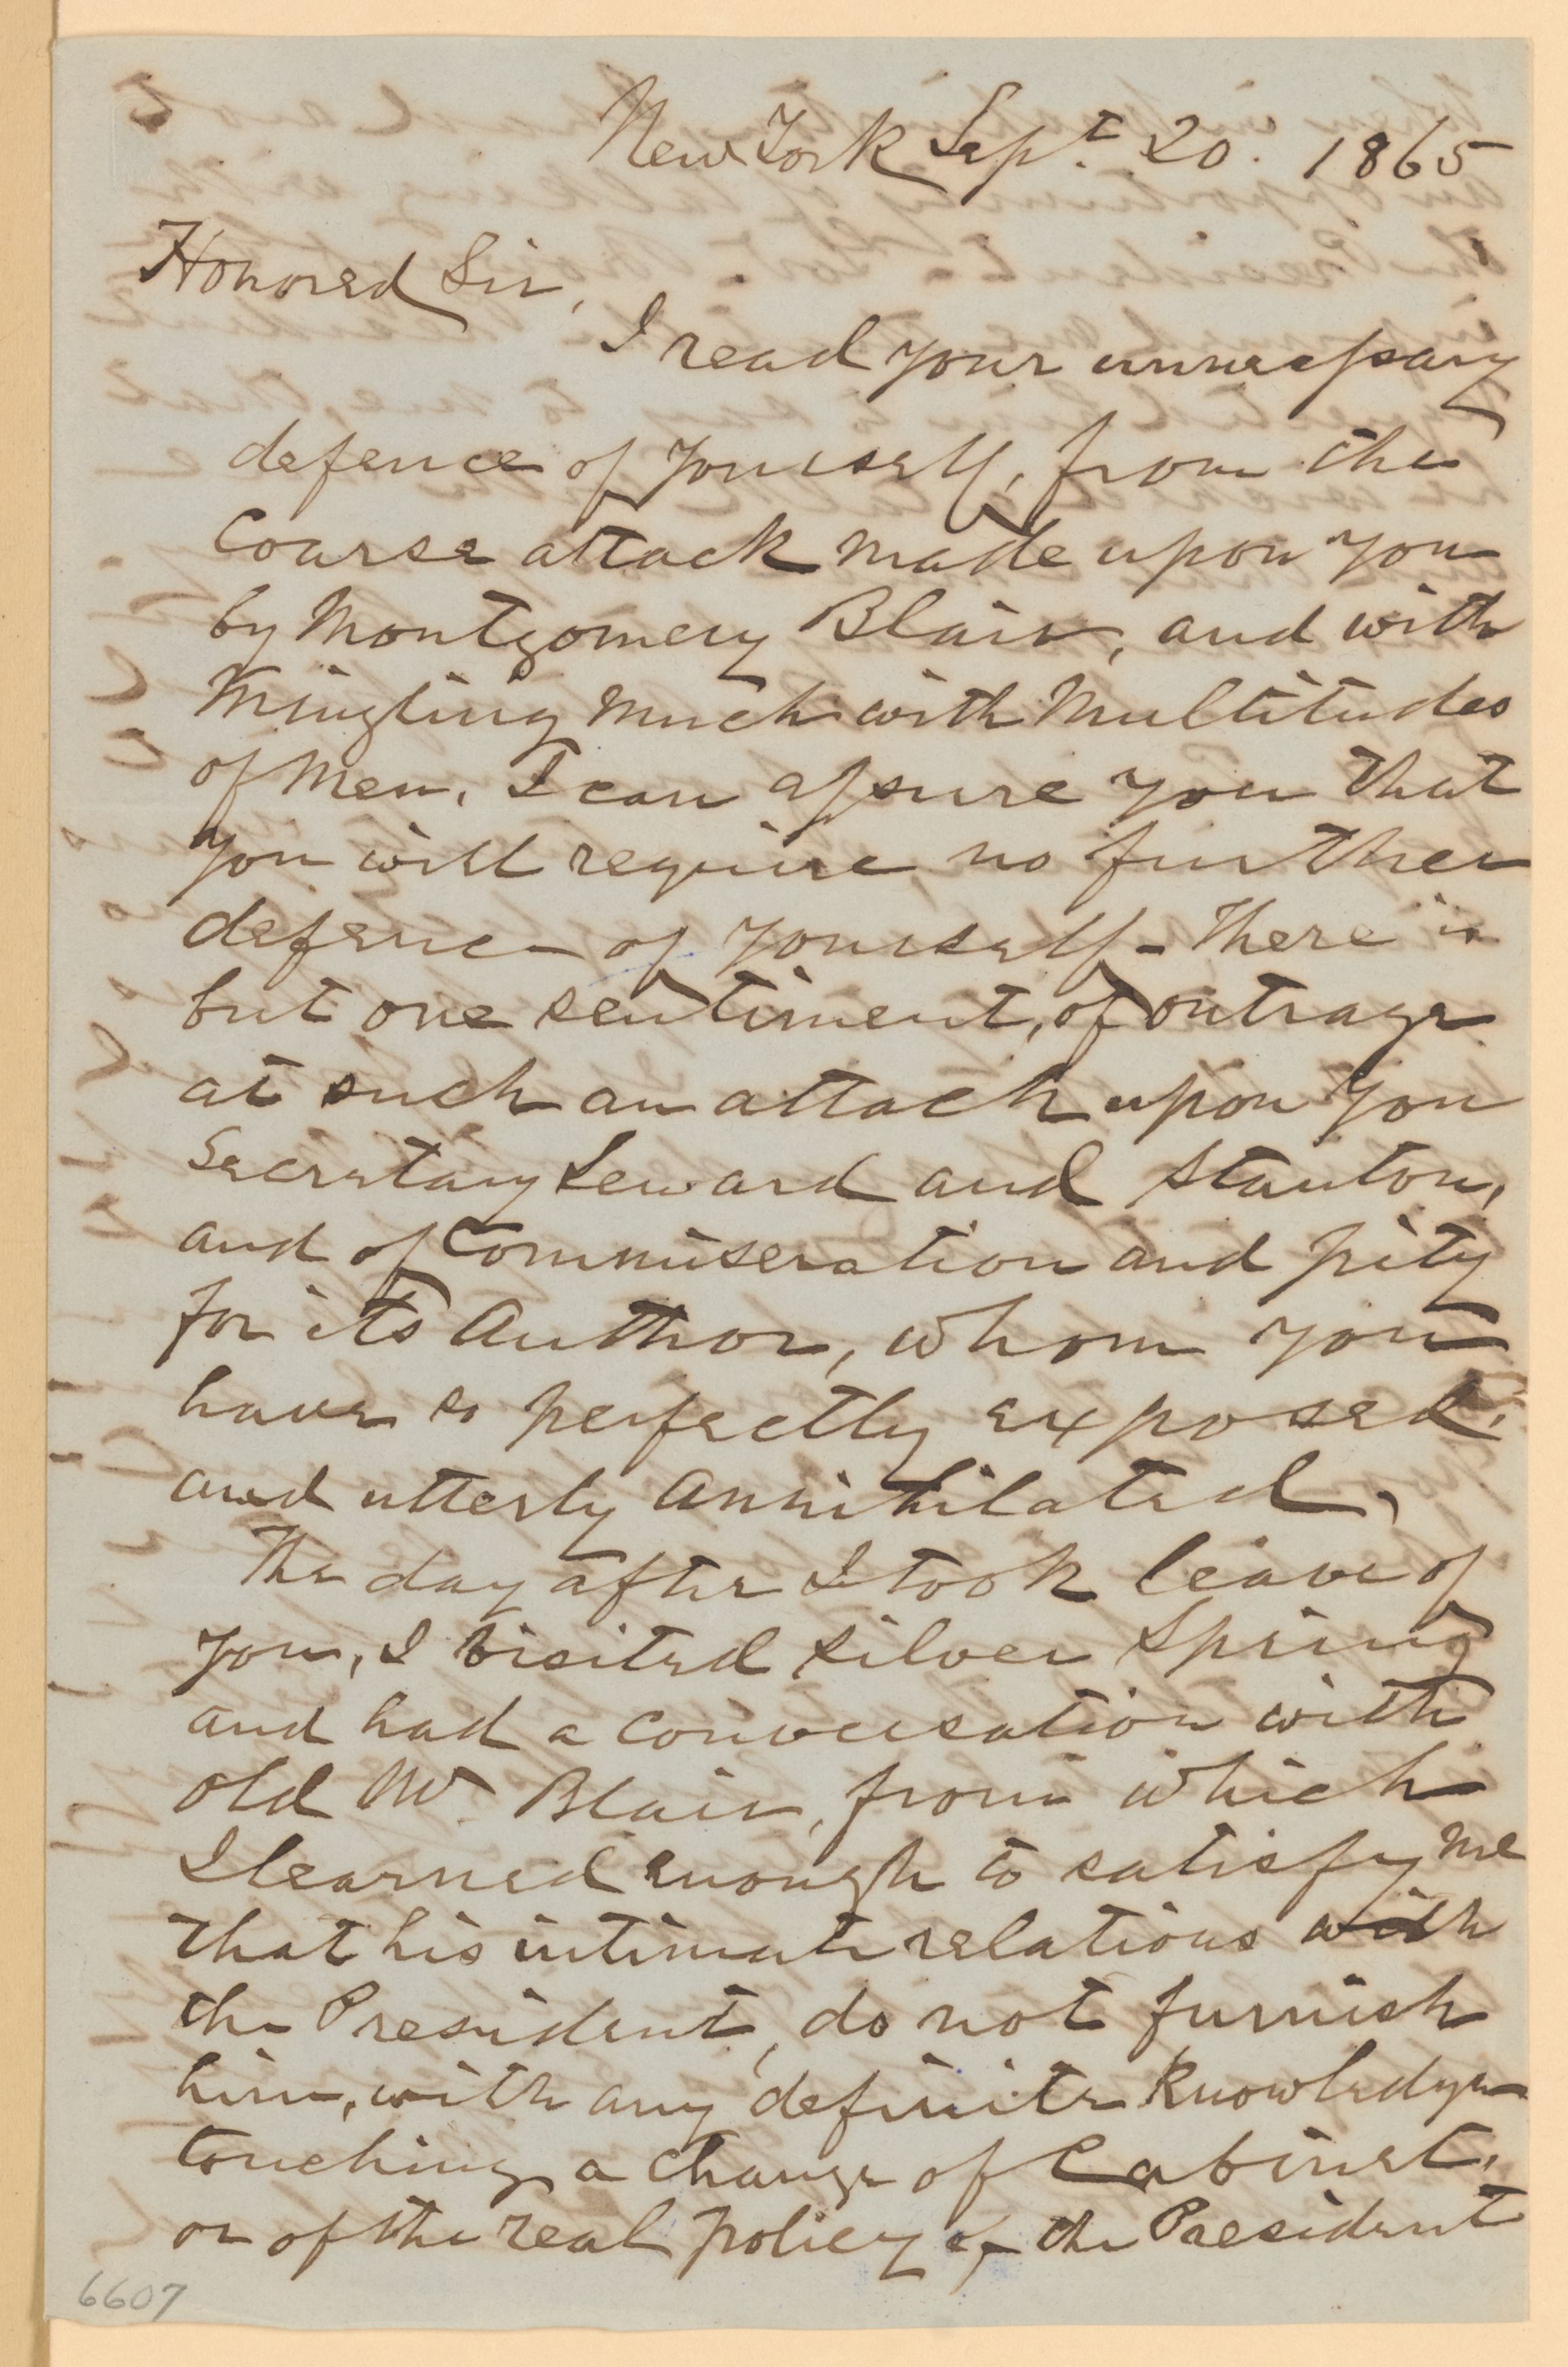 New York Sept. 20. 1865
Honored Sir,
I read your unnecessary
defence of yourself, from the
Coarse attack made upon you
by Montgomery Blair, and with
Mingling much with Multitudes
of Men, I can assure you that
you will require no further
defence of yourself - There is
but one sentiment, of outrage
at such an attack upon you
Secretary Seward and Stanton,
and of Commiseration and pity
for its Author, whom you
have so perfectly exposed,
and utterly annihilated,
The day after I took leave of
you, I visited Silver Spring
and had a conversation with
old Mr Blair, from which
I learned enough to satisfy me
that his intimate relations with
the President, do not furnish
him, with any definite knowledge
touching a change of Cabinet,
or of the real policy of the President
6607